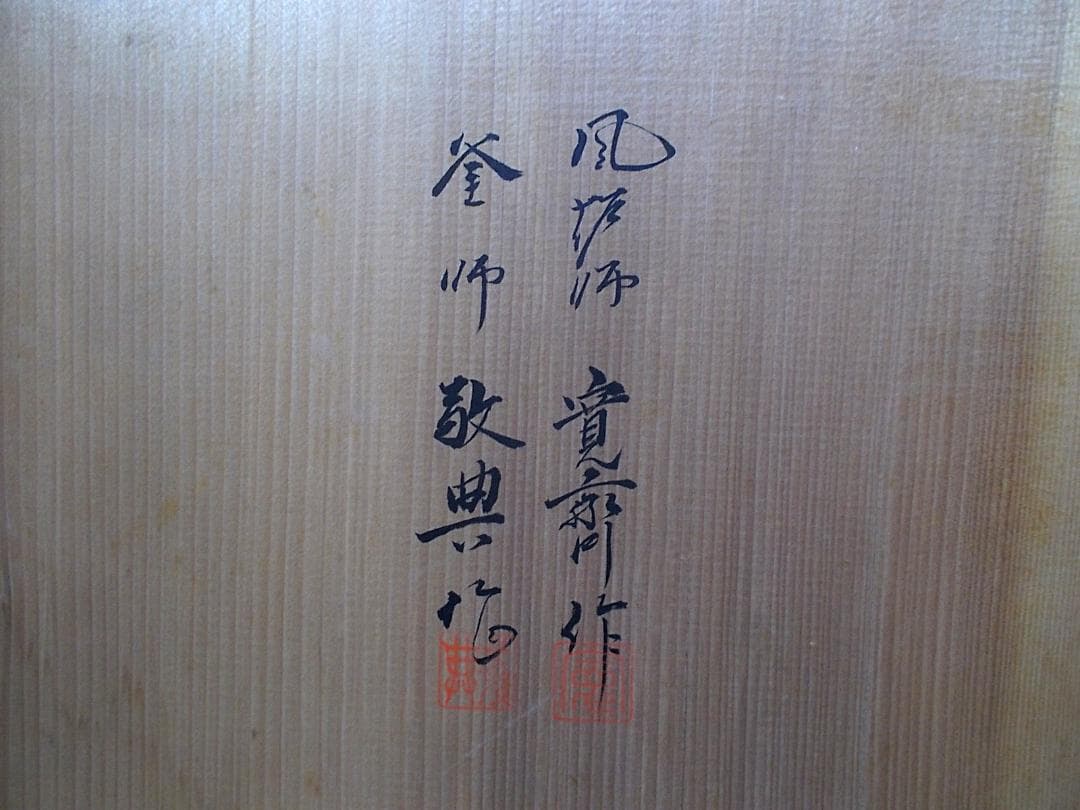 風炉師 寛斎作
釜師 敬典